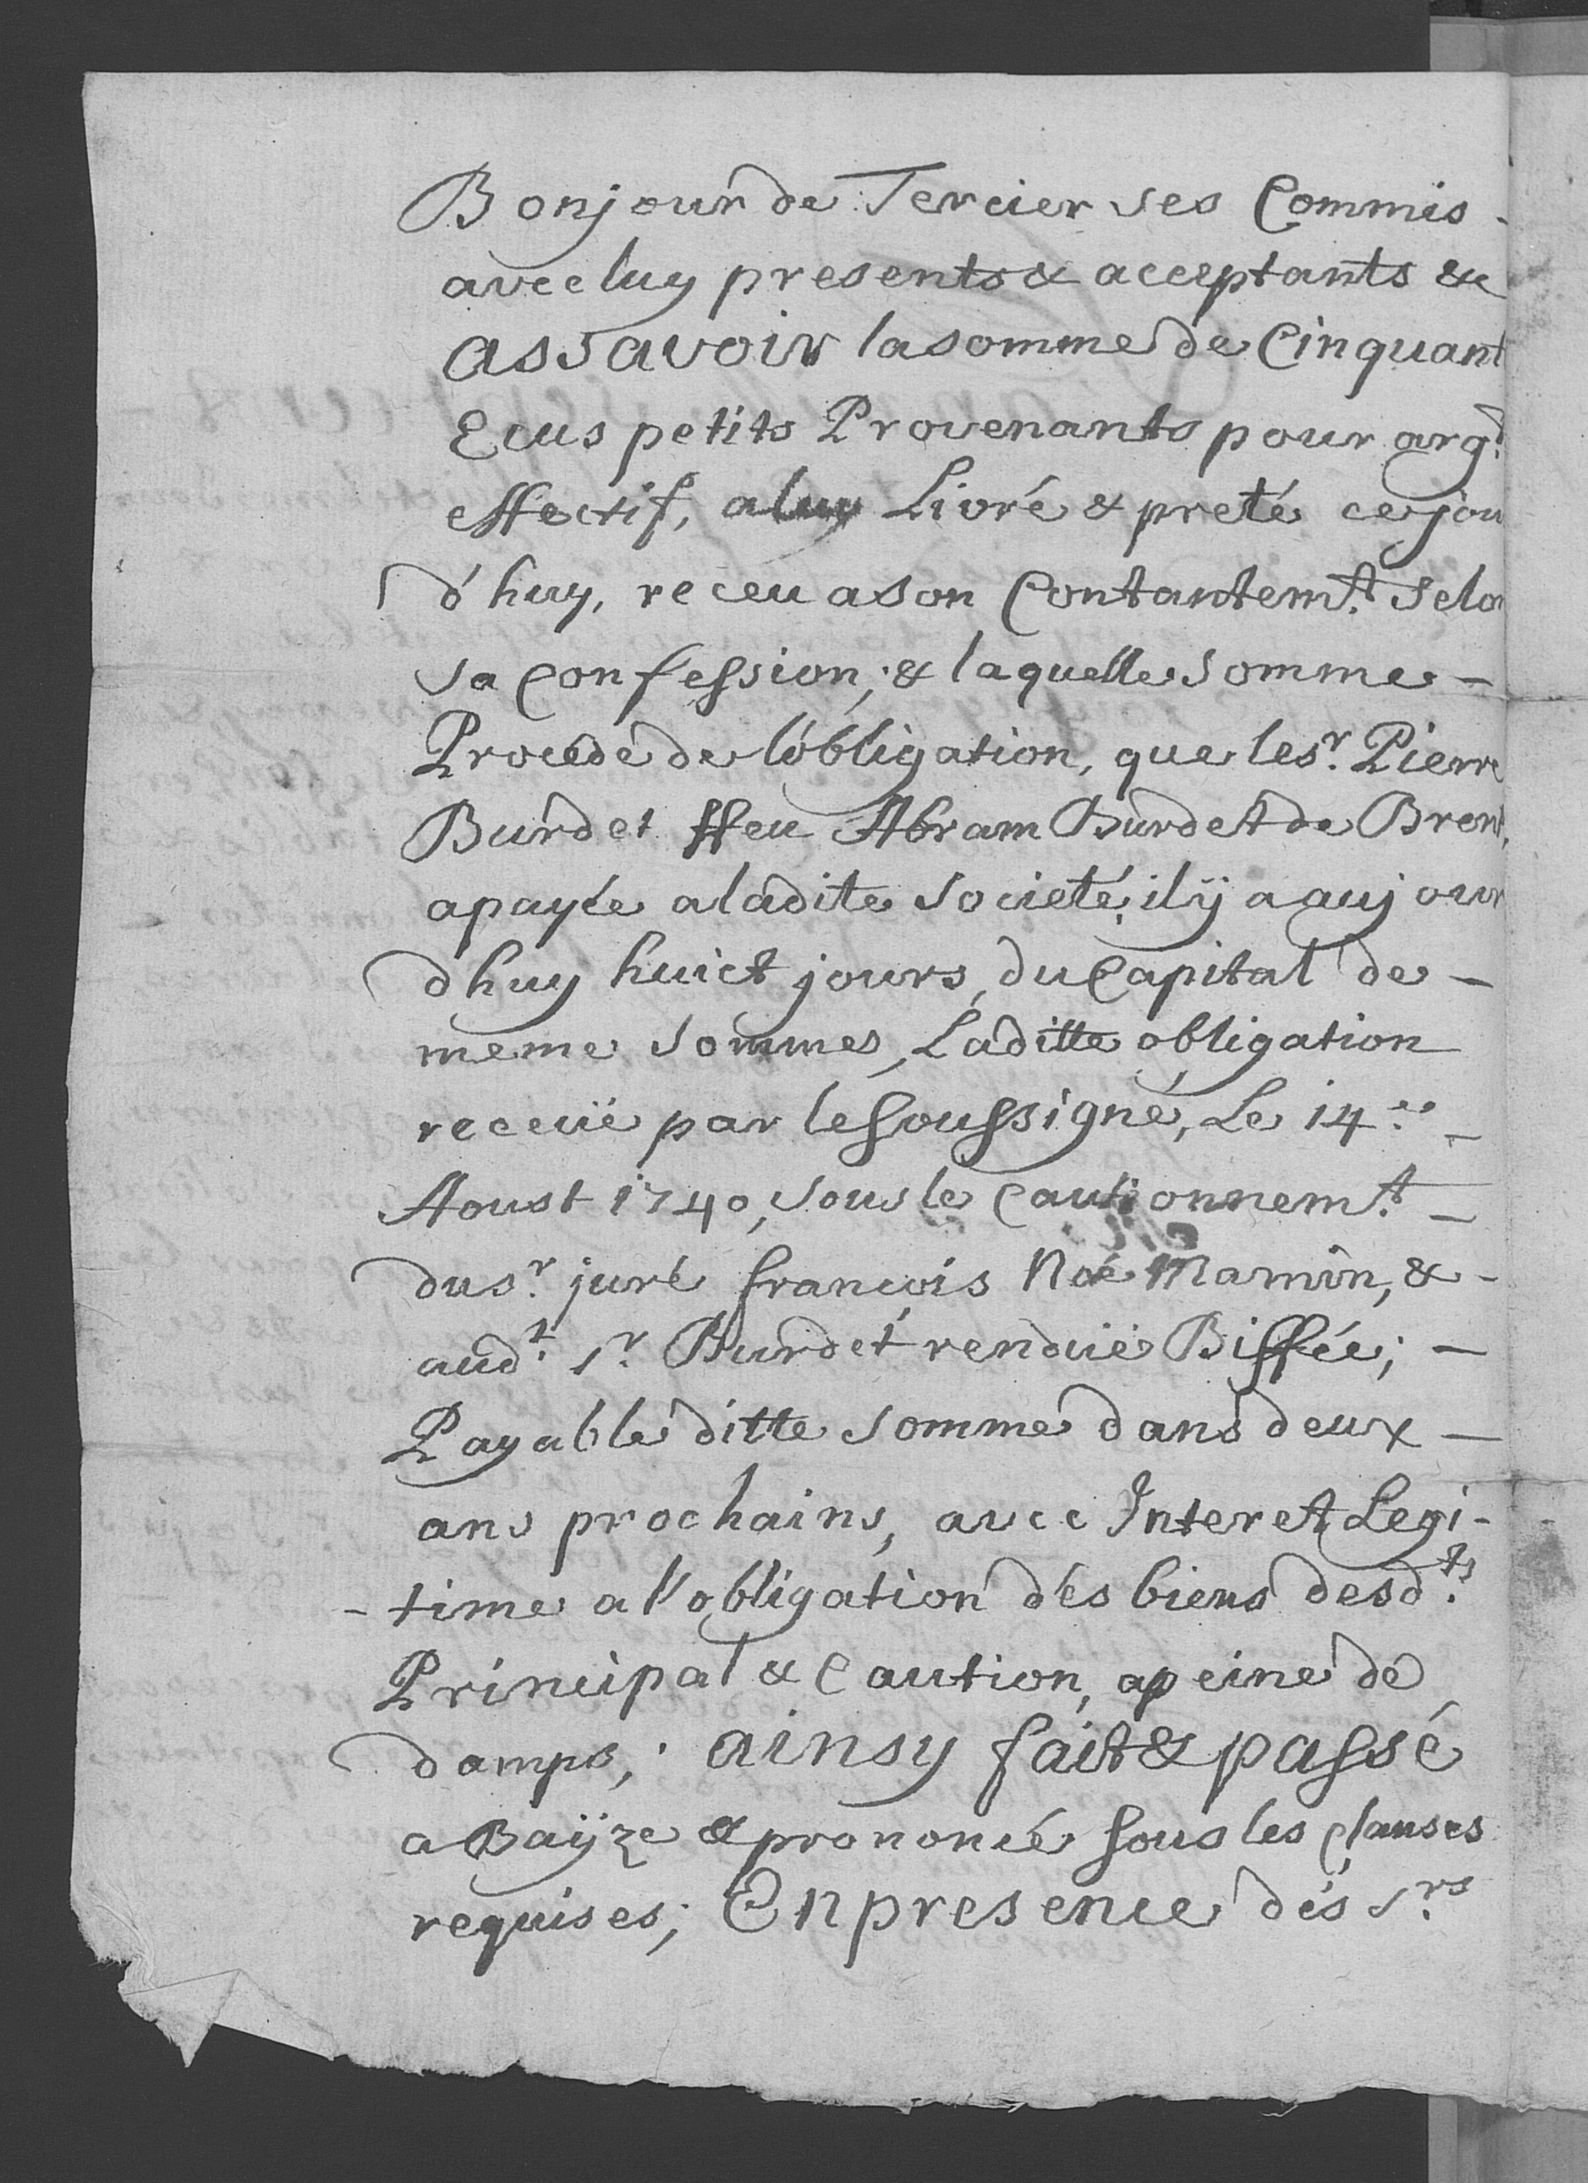 Bonjour de Tercier ses Commis -
avec luy presents & acceptants &c
assavoir la somme de Cinquant
Ecus petits Provenants pour arg.t
effectif, a luy Livré & preté ce jou
d'huy, receu a son Contantem.t selon
sa Confession; & laquelle somme -
Procede de l'obligation, que le s.r Pierre
Burdet ffeu Abram Burdet de Brent,
a payée a ladite Societé, il ÿ a aujour
dhuy huict jours, du Capital de -
meme sommes, Laditte obligation
receuë par le soussigné, Le 14.e -
Aoust 1740, sous le Cautionnem.t -
du s.r juré françois Noé Mamin, & -
aud.t s.r Burdet renduë Biffée; -
Payable ditte somme dans deux -
ans prochains, avec Interet Legi-
- time a l'obligation des biens desd.ts
Principal & Caution, a peine de
damps; ainsy fait & passé
a Baÿze & prononcé sous les clauses
requises; En presence des s.rs